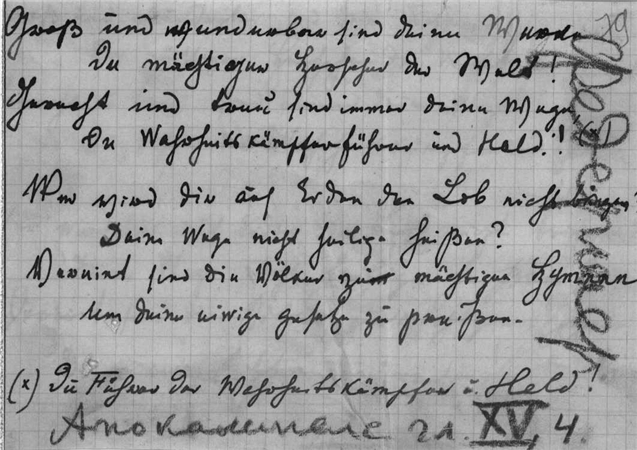 Groß und wunderbar sind deine Werke 79
Du mächtiger Herrscher der Welt!
Gerecht und treu sind immer deine Wege, (x)
Du Wahrheitskämpferführer und Held!
Wer wird dir auf Erden den Lob nicht bringen
Deine Wege nicht heilige heißen?
Vereint sind die Völker zum mächtigen Hymnen
Um deine ewige gesetze zu preißen.
(x) Du Führer der Wahrheitskämpfer u. Held!
Апокалипсис гл. XV, 4.